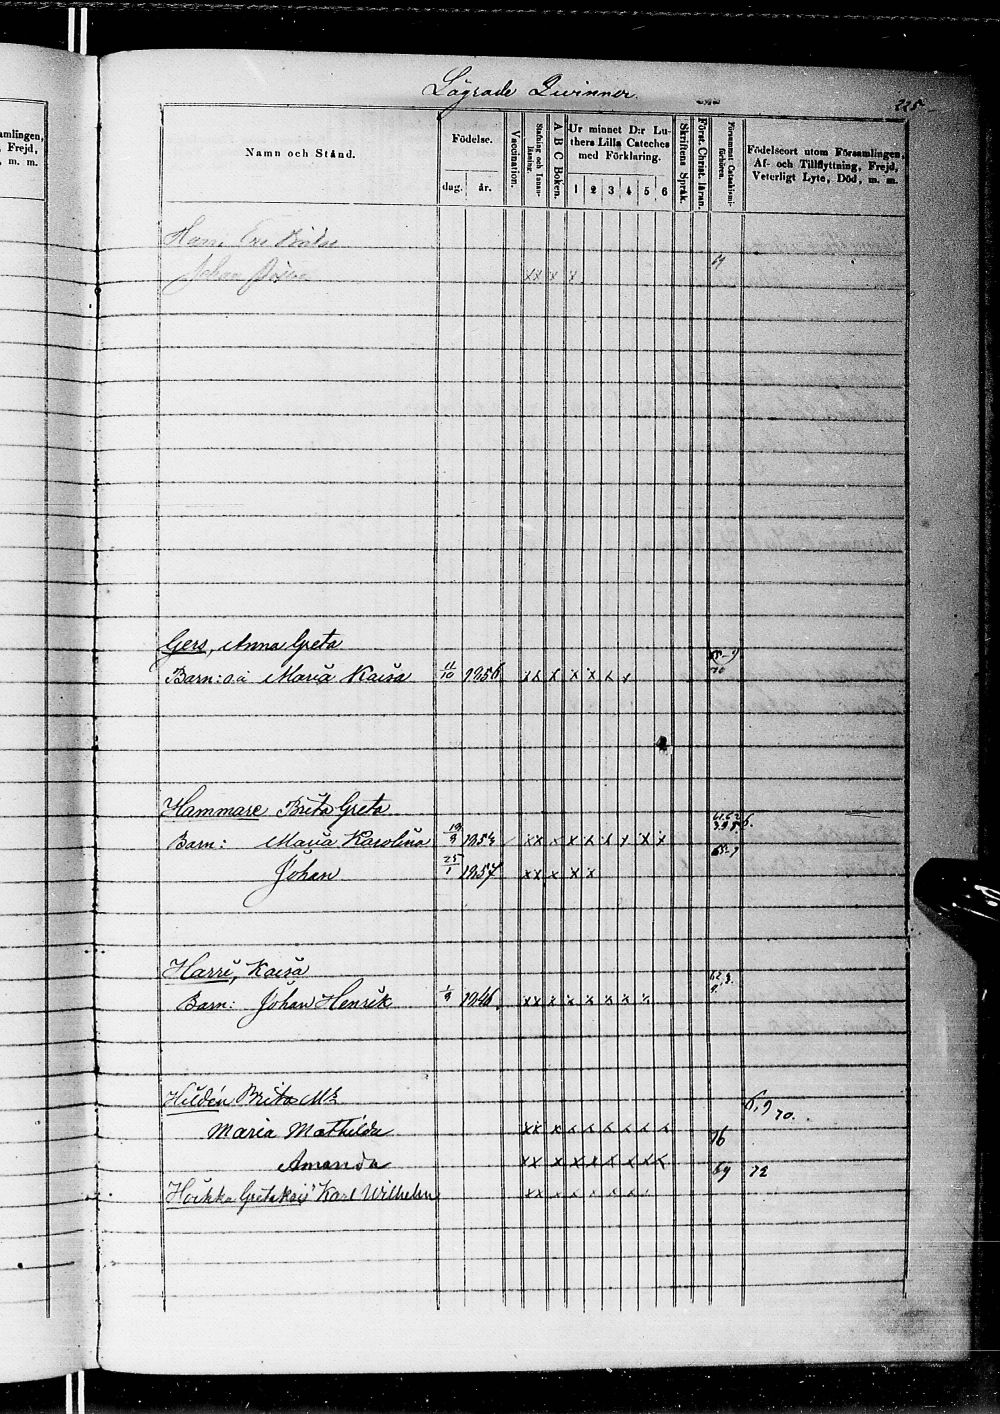 amlingen,
, Frejd,
, m. m.
Lägrade Qvinnor.
225
Namn och Stånd.
Födelse.
dag. år.
Vaccination.
Stafning och Innanläsning.
A B C Boken.
Ur minnet D:r Luthers Lilla Cateches med Förklaring.
1 2 3 4 5 6
Skriftens Språk.
Först. Christ. läran.
Försummat Catechismiförhören.
Födelseort utom Församlingen,
Af- och Tillflyttning, Frejd,
Veterligt Lyte, Död, m. m.
Johan
69
xx x x
Gers, Anna Greta
Barn: o.ä Maria Kaisa 11/10 1856 xx x x x x x
70
Hammare Brita Greta
Barn: Maria Karolina 19/3 1854 xx x x x x x x x
Johan 25/1 1857 xx x x x
Harri, Kaisa
Barn: Johan Henrik 1/9 1846. xx x x x x x x
Hildén Brita
Maria Mathilda xx x x x x x x x 76
6,9 70.
Amanda xx x x x x x x x 69 72
Hoikka Greta Kais Karl Wilhelm xx x x x x x x